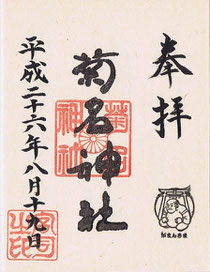 奉拝
菊名神社
菊名神社
平成二十六年八月十九日